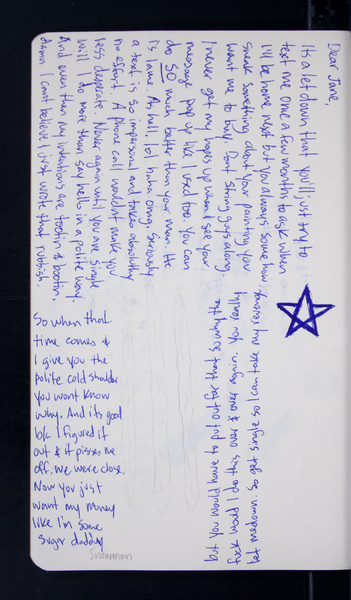 Dear Jane,
Its a let down that you'll just try to
text me once a few months to ask when
I'll be home next but you always some how
sneak something about your painting you
want me to buy. Dont string guys along.
I never get my hopes up when I see your
message pop up like I used too. You can
do SO much better than your man. He
is lame. As hell, lol haha omg. Seriously
a text is so impersonal and takes absolutly
no effort. A phone call wouldnt make you
less desprate. Never again until you are single
will I do more than say hello in a polite way.
And even then my intentions are tootin & bootin.
damn I cant believe I just wrote that rubbish.
So when that
time comes &
I give you the
polite cold shoulder
you wont know
why. And its good
b/c I figured it
out & it pisses me
off. we were close.
Now you just
want my money
like I'm some
sugar daddy
but you would have to put out for that so why the
fuck would I do this over & over again. You really
let me down. So get single so I can take my revenge.
Snowman